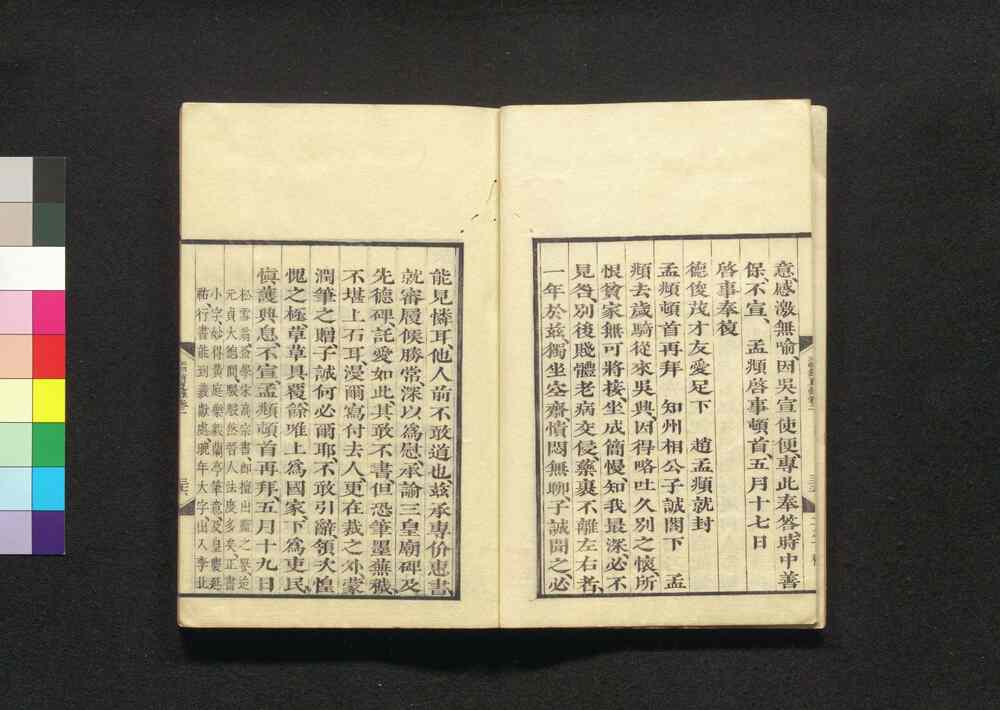 意、感激無喻、因吳宣使便、專此奉答、時中善
保、不宣、孟頫啓事頓首、五月十七日
啓事奉復
德俊茂才友愛足下 趙孟頫就封
孟頫頓首再拜 知州相公子誠閣下 孟
頫去歲騎從來吳興、因得略吐久別之懷、所
恨貧家無可將接、坐成簡慢、知我最深、必不
見咎、別後賤體老病交侵、藥裹不離左右者、
一年於茲、獨坐空齋、憒悶無聊、子誠聞之、必
能見憐耳、他人前不敢道也、茲承專价惠書、
就審履候勝常、深以爲慰、承諭三皇廟碑及
先德碑、託愛如此、其敢不書、但恐筆墨蕪穢、
不堪上石耳、漫爾寫付去人、更在裁之、外蒙
潤筆之贈、子誠何必爾耶、不敢引辭、領次惶
愧之極、草草具覆、餘唯上爲國家、下爲吏民、
愼護興息、不宣、孟頫頓首再拜、五月十九日
松雪翁蚤學宋高宗書、
元貞大德間、駸駸然晉人法度多矣、正書
小字、妙得黃庭樂毅蘭亭筆意、及皇慶延
祐、行書能到羲獻處、晚年大字出入李北